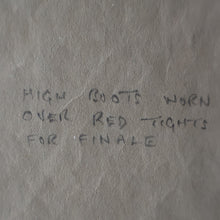 HIGH BOOTS WORN
OVER RED TIGHTS
FOR FINALE